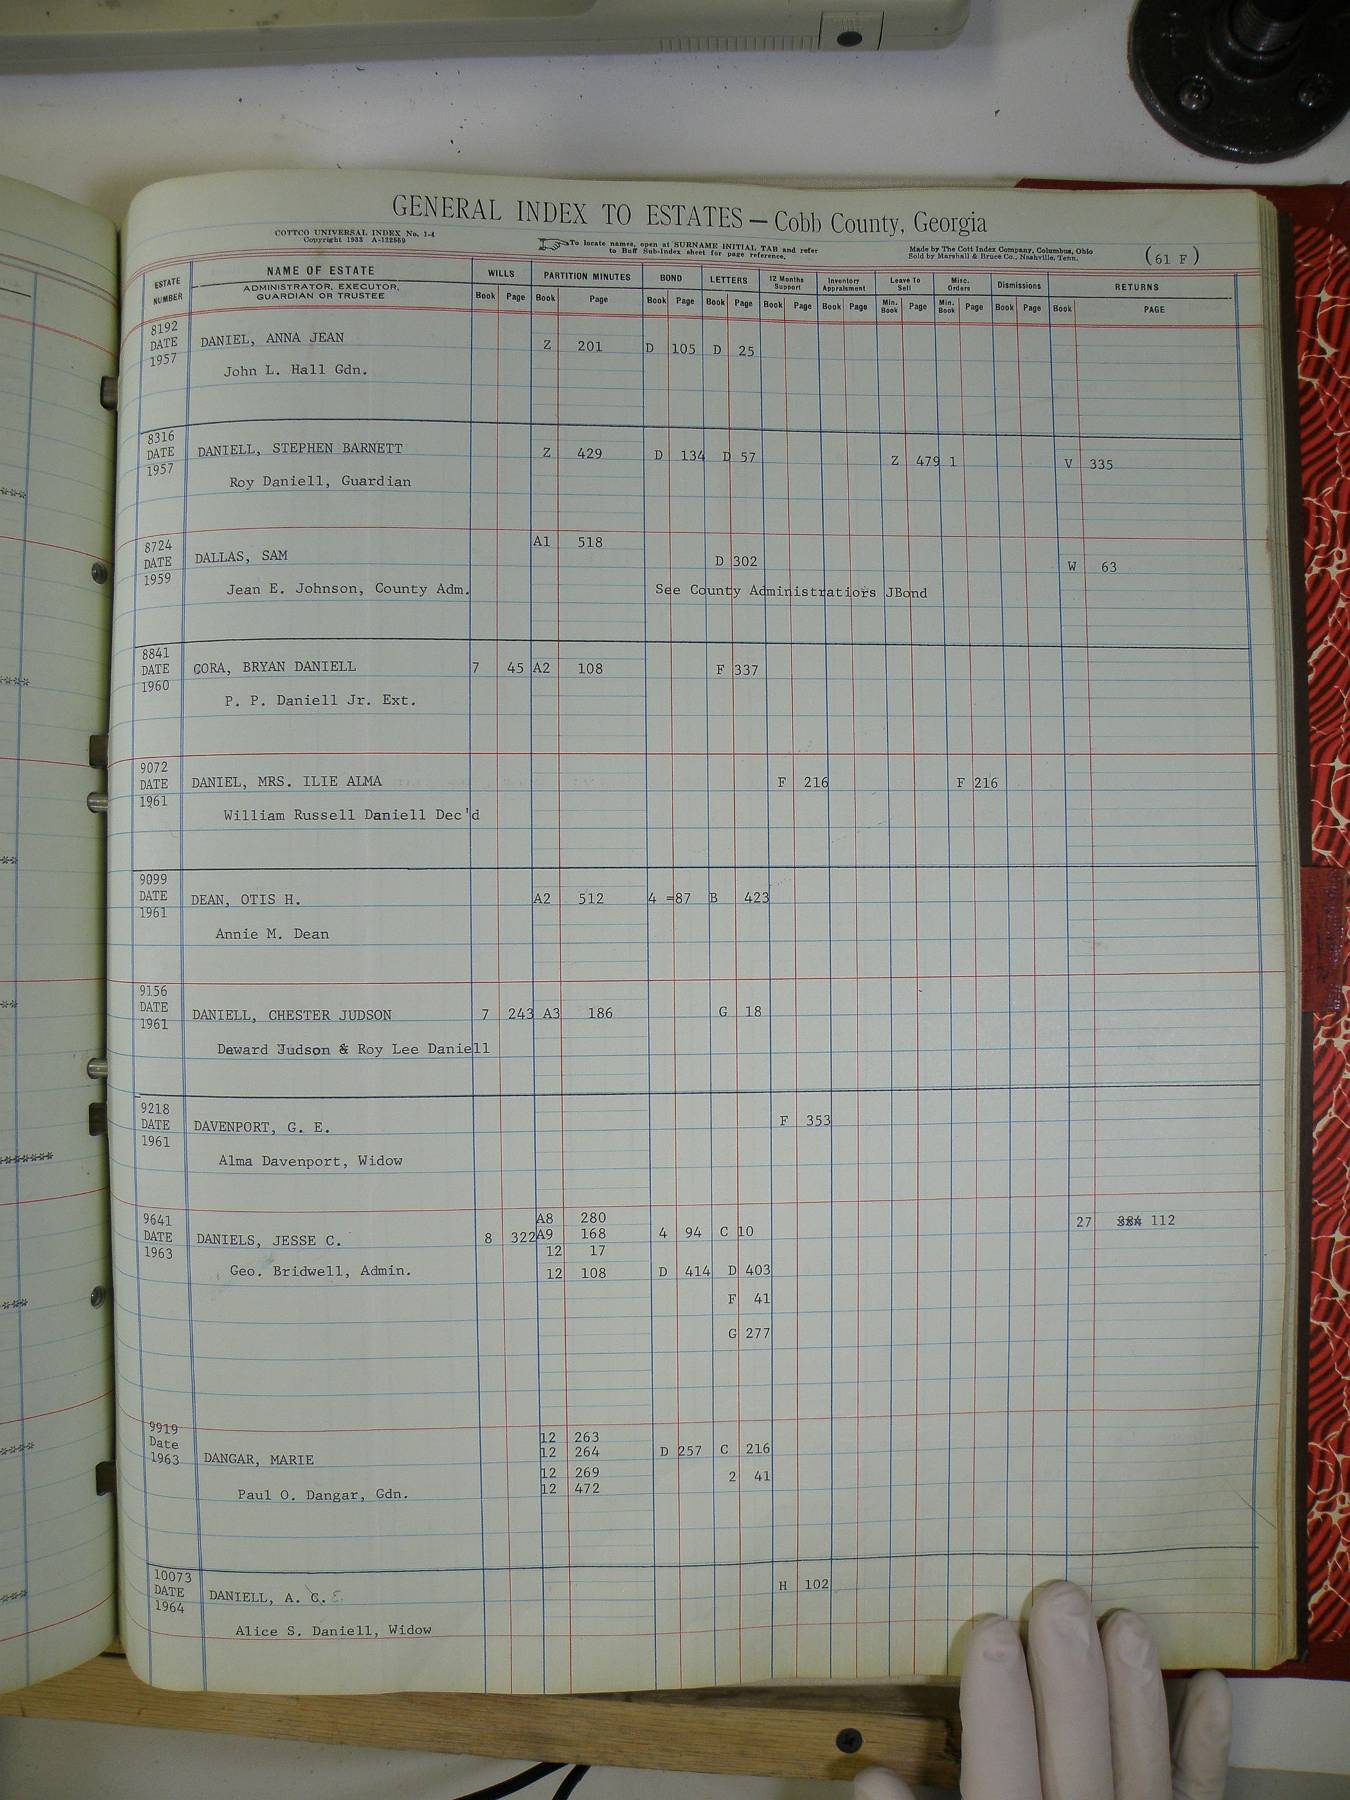 GENERAL INDEX TO ESTATES — Cobb County, Georgia
COTTCO UNIVERSAL INDEX No. 1-4
Copyright 1933 A-122559
To locate names, open at SURNAME INITIAL TAB and refer
to Buff Sub-Index sheet for page reference.
Made by The Cott Index Company, Columbus, Ohio
Sold by Marshall & Bruce Co., Nashville, Tenn.
(61 F)
ESTATE NUMBER
NAME OF ESTATE
ADMINISTRATOR, EXECUTOR, GUARDIAN OR TRUSTEE
WILLS PARTITION MINUTES BOND LETTERS 12 Months Support Inventory Appraisment Leave To Sell Misc. Orders Dismissions RETURNS
Book Page Book Page Book Page Book Page Book Page Book Page Min. Book Page Min. Book Page Book Page Book PAGE
8192
DATE
1957
DANIEL, ANNA JEAN Z 201 D 105 D 25
John L. Hall Gdn.
8316
DATE
1957
DANIELL, STEPHEN BARNETT Z 429 D 134 D 57 Z 479 1 V 335
Roy Daniell, Guardian
8724
DATE
1959
A1 518
DALLAS, SAM D 302 W 63
Jean E. Johnson, County Adm. See County Administratiors JBond
8841
DATE
1960
CORA, BRYAN DANIELL 7 45 A2 108 F 337
P. P. Daniell Jr. Ext.
9072
DATE
1961
DANIEL, MRS. ILIE ALMA F 216 F 216
William Russell Daniell Dec'd
9099
DATE
1961
DEAN, OTIS H. A2 512 4 =87 B 423
Annie M. Dean
9156
DATE
1961
DANIELL, CHESTER JUDSON 7 243 A3 186 G 18
Deward Judson & Roy Lee Daniell
9218
DATE
1961
DAVENPORT, G. E. F 353
Alma Davenport, Widow
9641
DATE
1963
A8 280 27 112
DANIELS, JESSE C. 8 322 A9 168 4 94 C 10
12 17
Geo. Bridwell, Admin. 12 108 D 414 D 403
F 41
G 277
9919
Date
1963
12 263
DANGAR, MARIE 12 264 D 257 C 216
12 269 2 41
Paul O. Dangar, Gdn. 12 472
10073
DATE
1964
DANIELL, A. C. E H 102
Alice S. Daniell, Widow